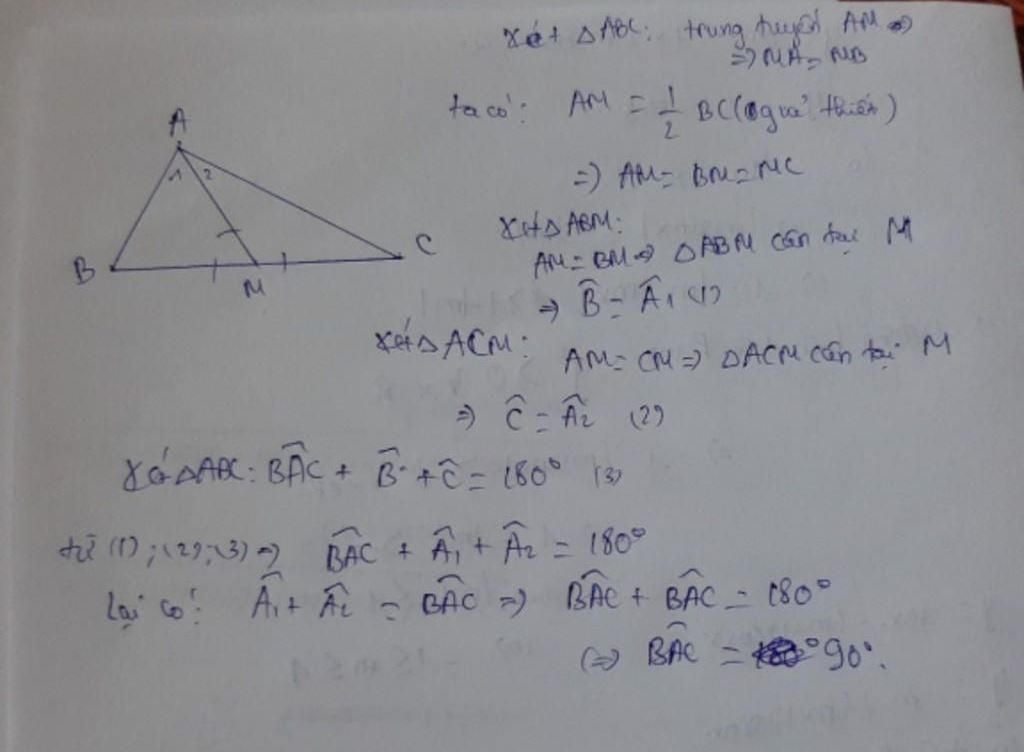 Xét ΔABC: trung tuyến AM =>
=> MA = MB
ta có: AM = 1/2 BC (giả thiết)
=> AM = BM = MC
A
1 2
B
M
C
Xét ΔABM:
AM = BM => ΔABM cân tại M
=> B̂ = Â1 (1)
Xét ΔACM:
AM = CM => ΔACM cân tại M
=> Ĉ = Â2 (2)
Xét ΔABC: BÂC + B̂ + Ĉ = 180° (3)
từ (1); (2); (3) => BÂC + Â1 + Â2 = 180°
Lại có: Â1 + Â2 = BÂC => BÂC + BÂC = 180°
(=> BÂC = 90°.